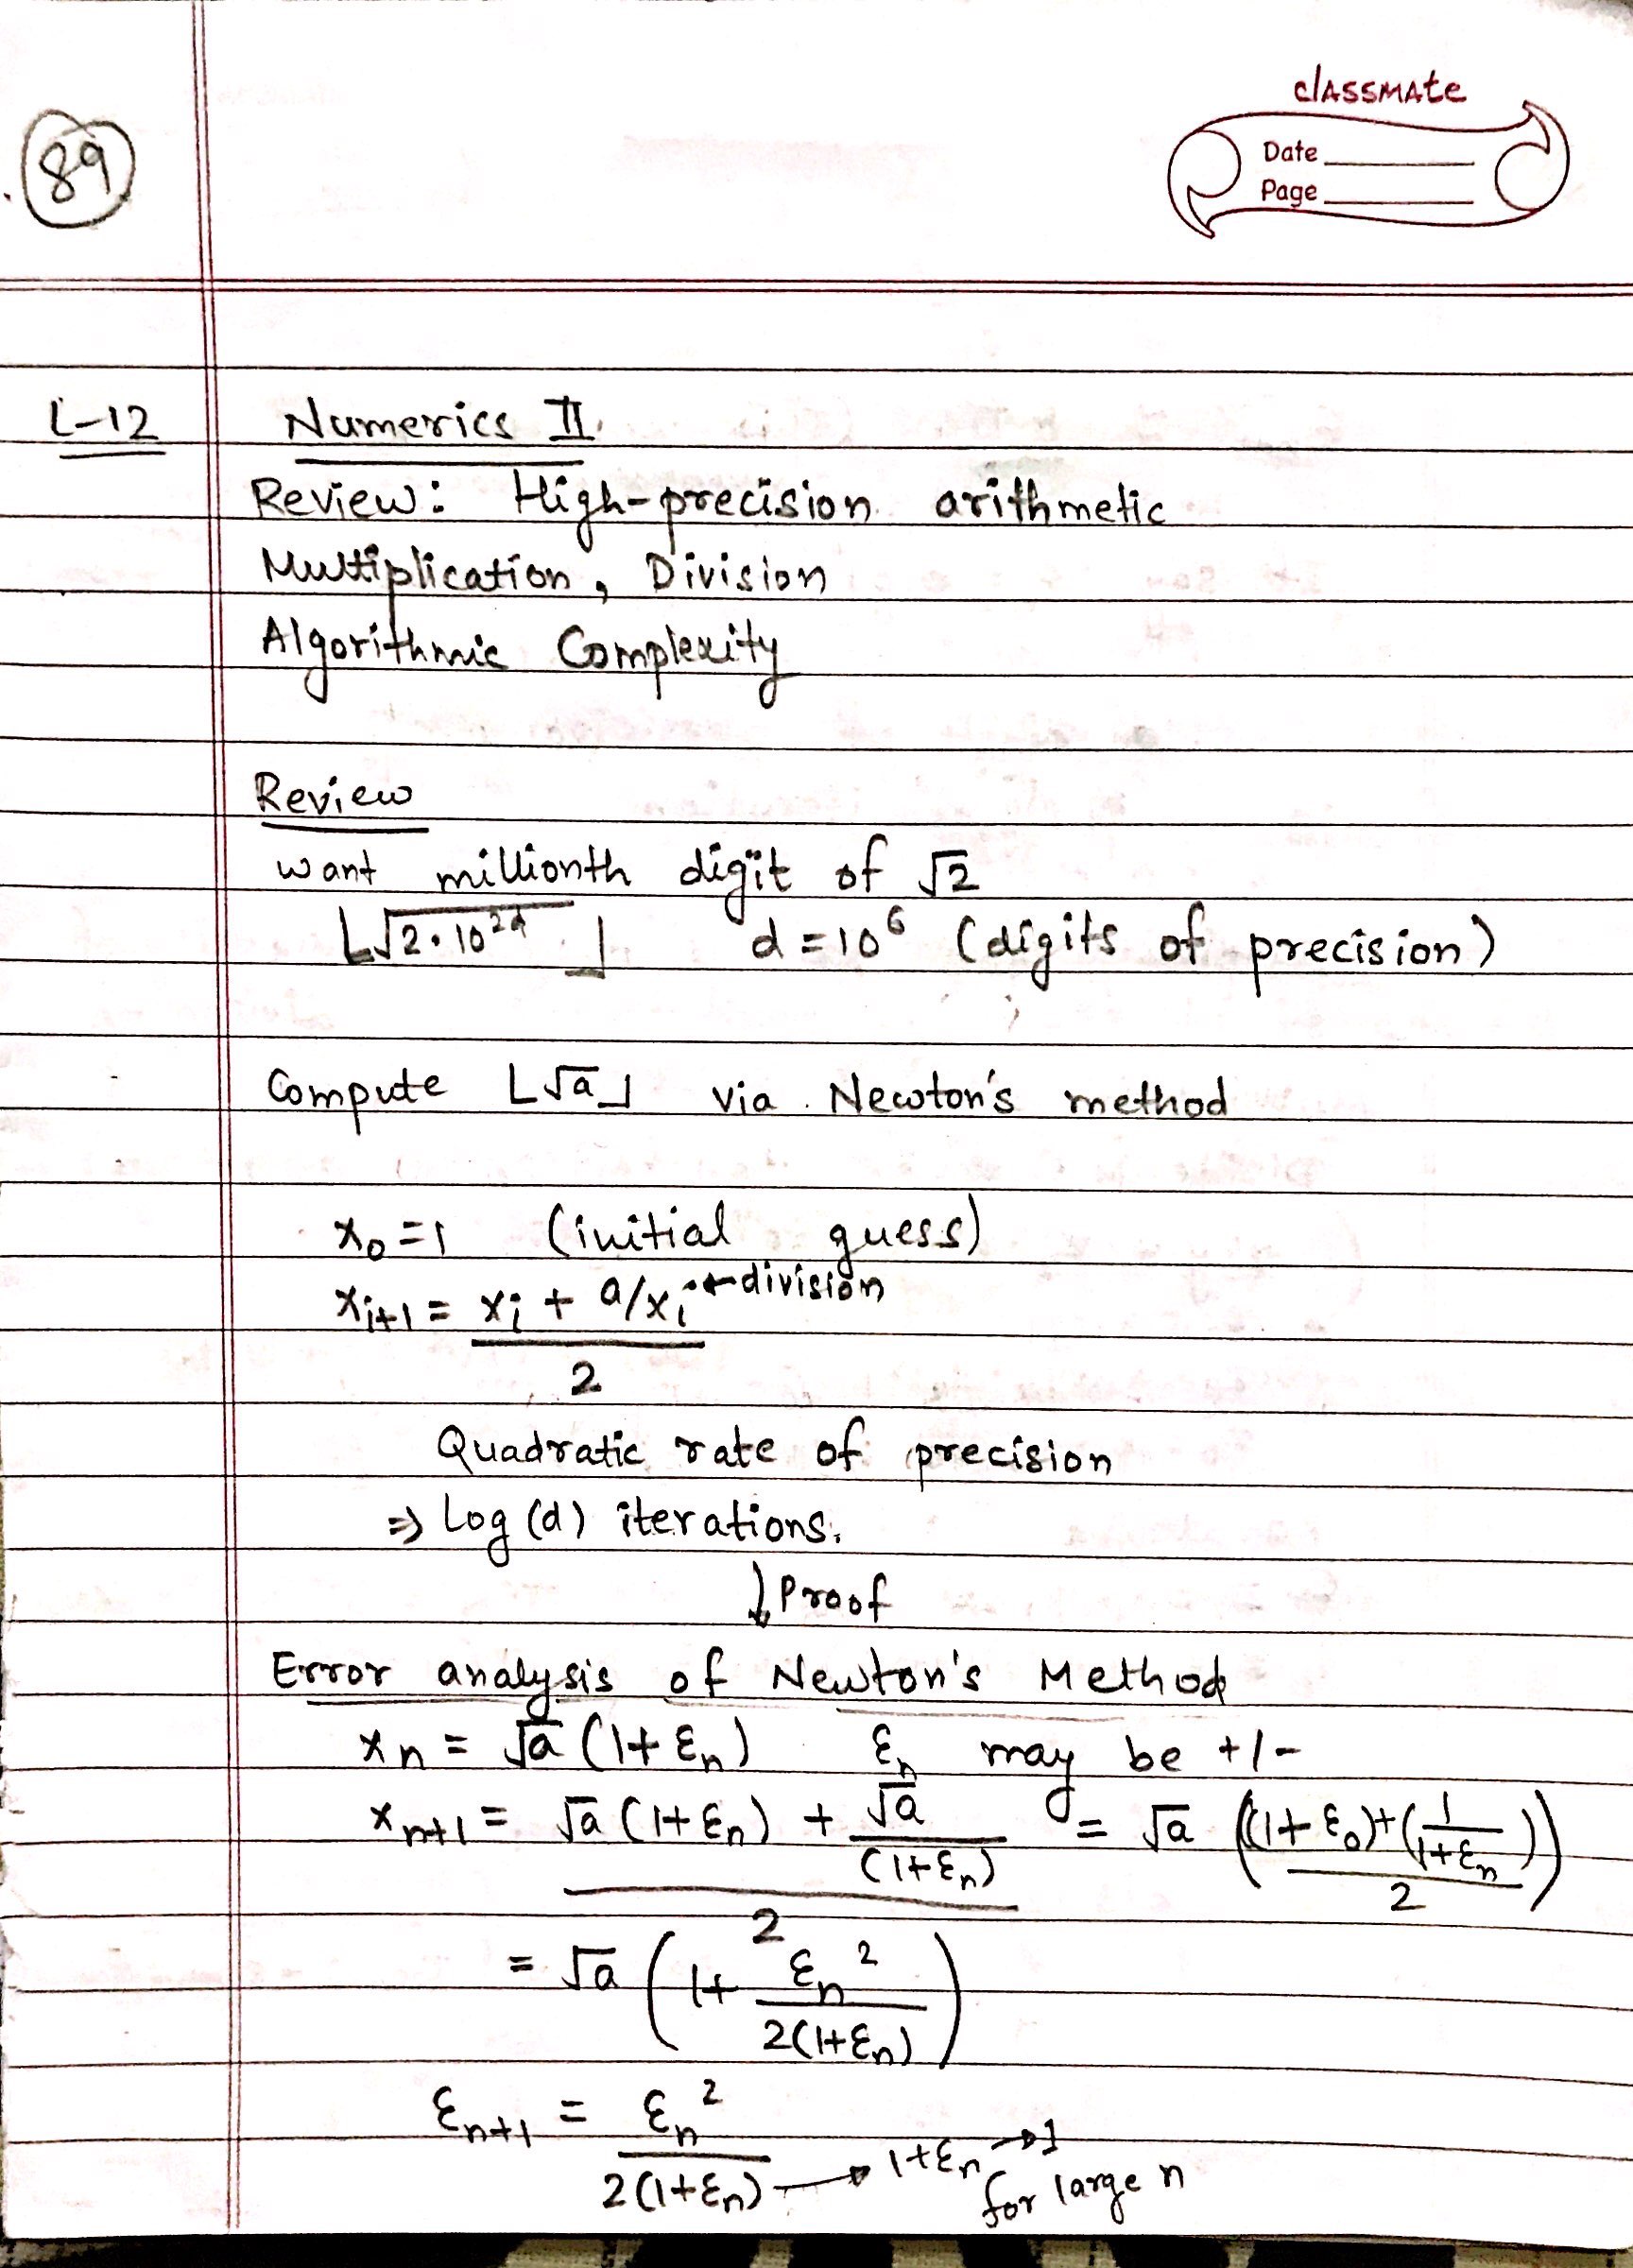 classmate
Date
Page
89
L-12 Numerics II
Review: High-precision arithmetic
Multiplication, Division
Algorithmic Complexity
Review
want millionth digit of √2
⌊√2·10^2d⌋ d = 10^6 (digits of precision)
Compute ⌊√a⌋ via Newton's method
x_0 = 1 (initial guess)
x_i+1 = (x_i + a/x_i)/2 ← division
Quadratic rate of precision
⇒ Log(d) iterations.
↓ Proof
Error analysis of Newton's Method
x_n = √a (1+ε_n) ε_n may be +/-
x_n+1 = (√a (1+ε_n) + √a/(1+ε_n))/2 = √a (((1+ε_0)+(1/(1+ε_n)))/2)
= √a (1+ ε_n^2/(2(1+ε_n)))
ε_n+1 = ε_n^2/(2(1+ε_n)) → 1+ε_n → 1
for large n